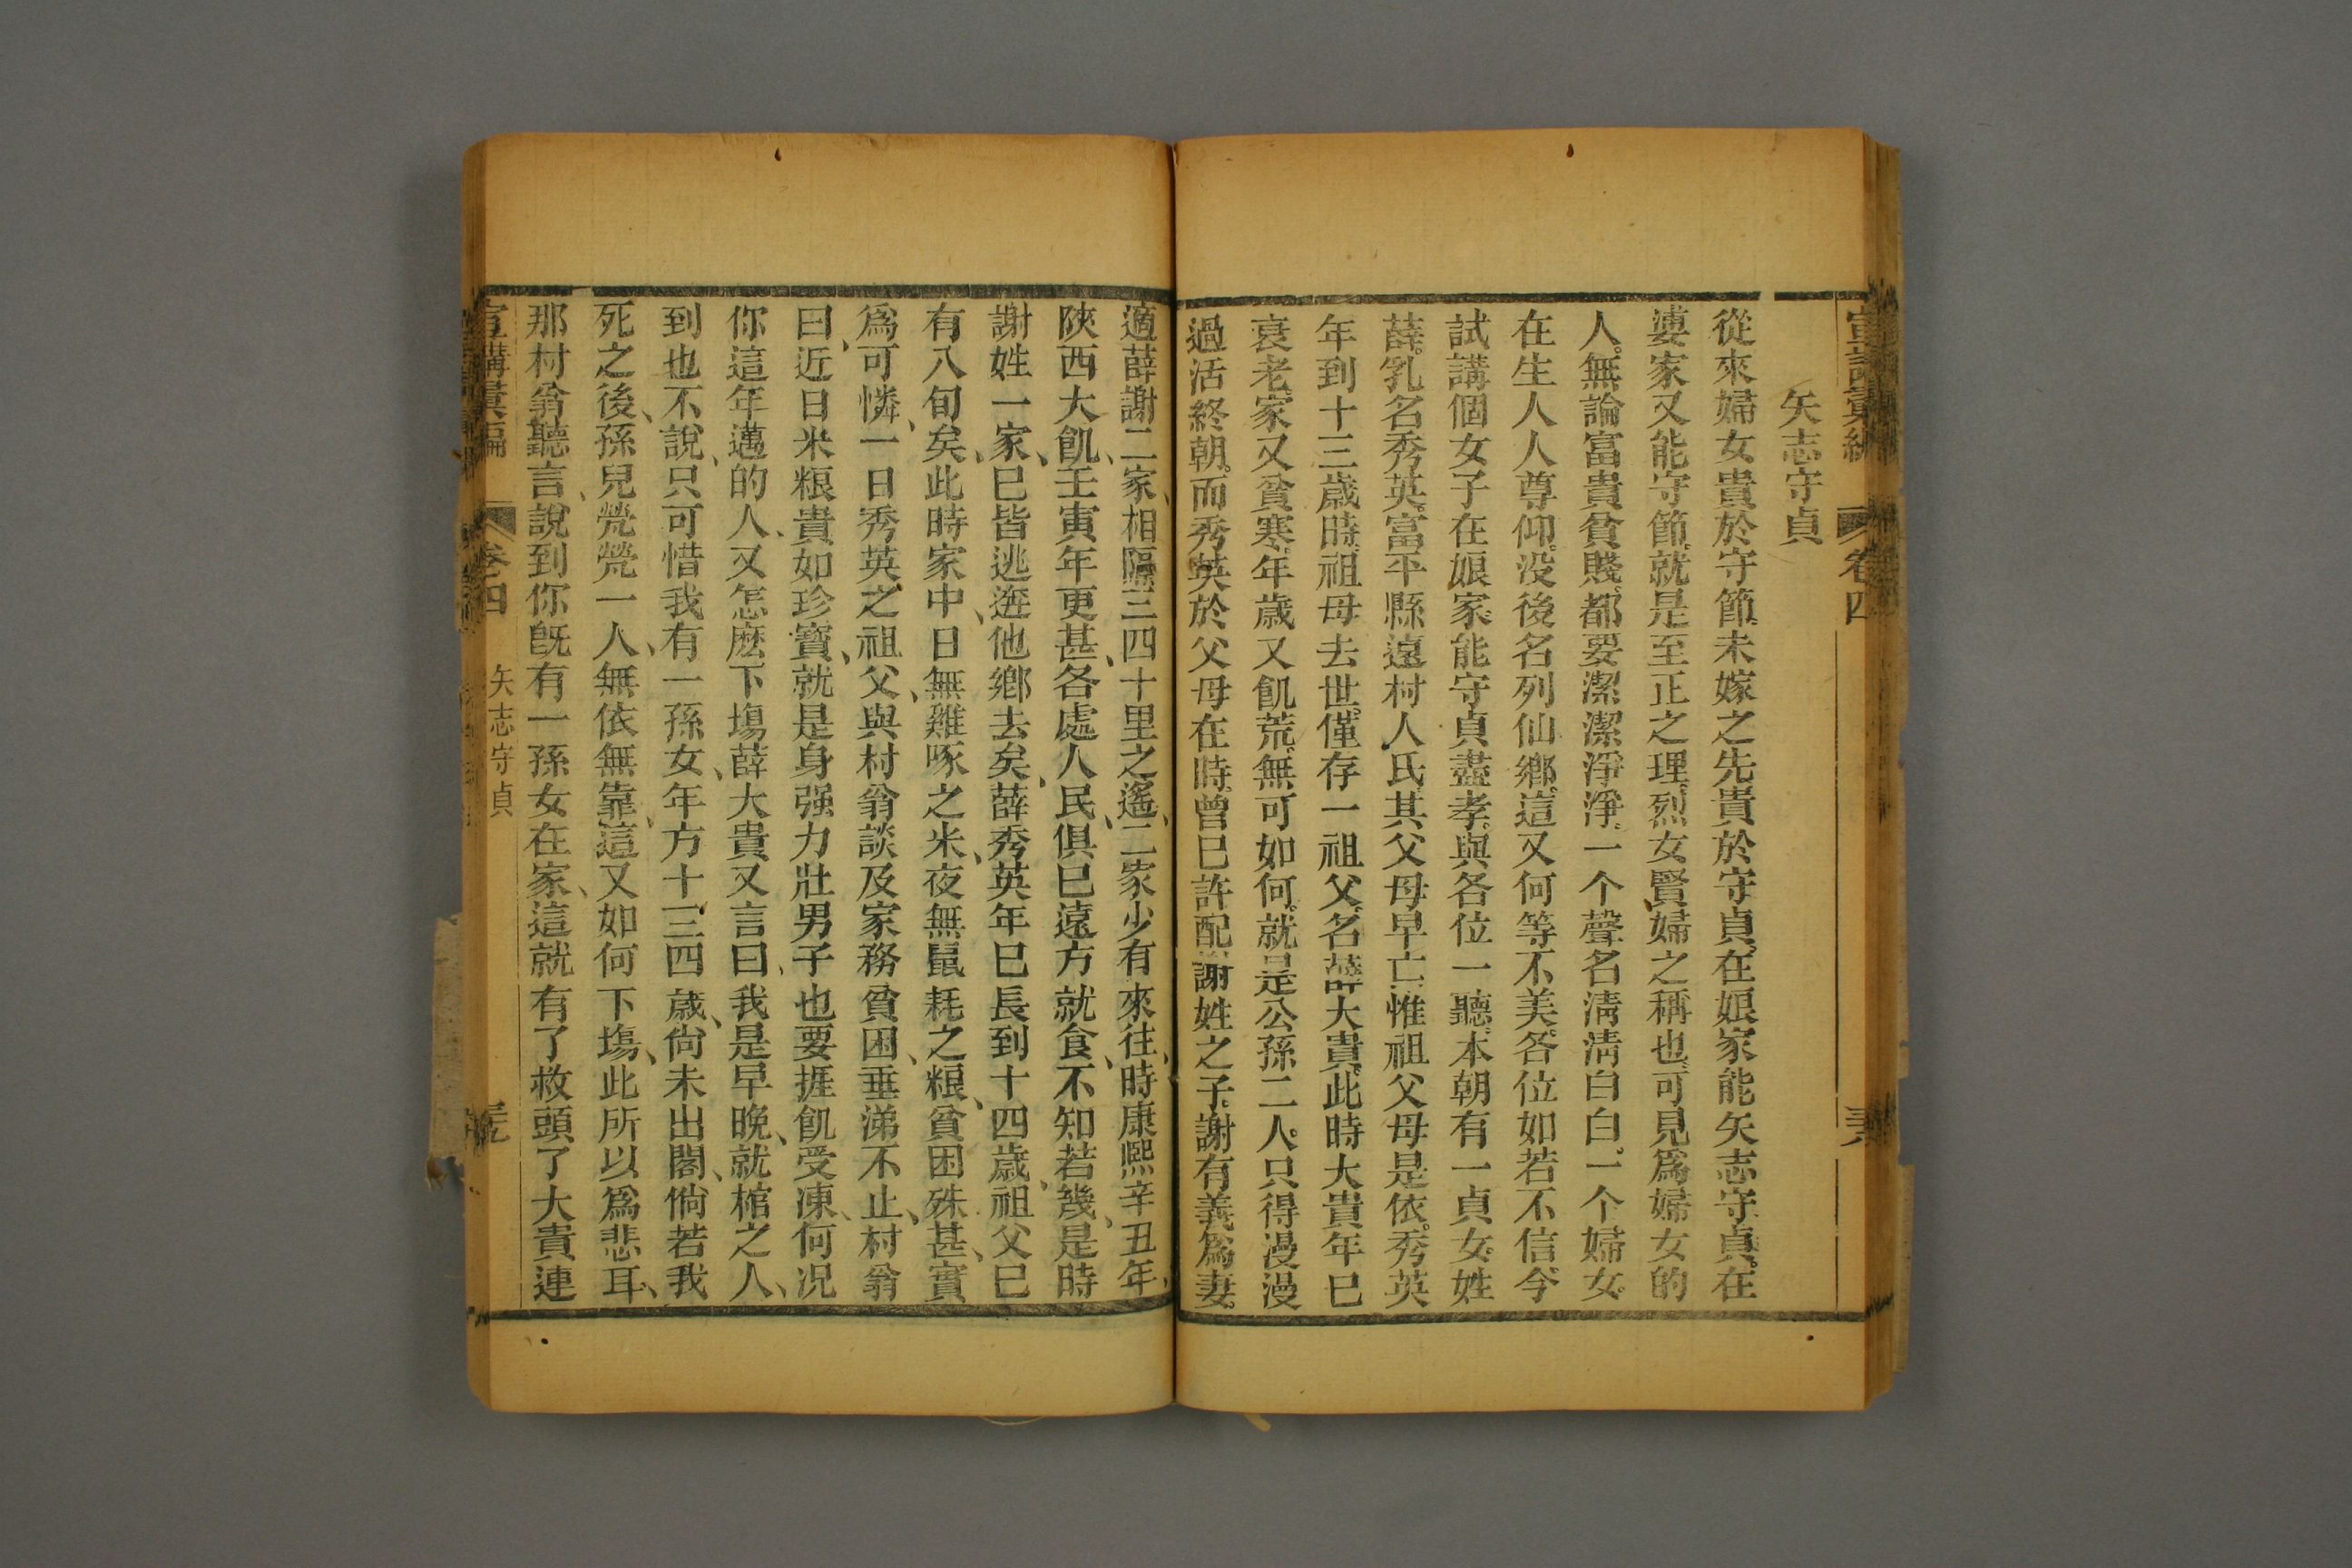 宣講彙編 卷四
矢志守貞
從來婦女貴於守節。未嫁之先貴於守貞。在娘家能矢志守貞。在
婆家又能守節。就是至正之理。烈女賢婦之稱也。可見爲婦女的
人。無論富貴貧賤。都要潔潔淨淨。一个聲名清清白白。一个婦女。
在生人人尊仰。没後名列仙鄉。這又何等不美。各位如若不信。今
試講個女子在娘家。能守貞盡孝。與各位一聽。本朝有一貞女。姓
薛。乳名秀英。富平縣遠村人氏。其父母早亡。惟祖父母是依。秀英
年到十三歲時。祖母去世。僅存一祖父。名薛大貴。此時大貴年已
衰老。家又貧寒。年歲又飢荒。無可如何。就是公孫二人。只得漫漫
過活終朝。而秀英於父母在時。曾已許配謝姓之子。謝有義爲妻。
適薛謝二家、相隔三四十里之遙、二家少有來往、時康熙辛丑年、
陝西大飢、壬寅年更甚、各處人民、俱已遠方就食、不知若幾、是時
謝姓一家、已皆逃逛他鄉去矣、薛秀英年已長到十四歲、祖父已
有八旬矣、此時家中、日無雞啄之米、夜無鼠耗之粮、貧困殊甚、實
爲可憐、一日秀英之祖父、與村翁談及家務貧困、垂涕不止、村翁
曰、近日米粮貴如珍寶、就是身强力壯男子也要捱飢受凍、何况
你這年邁的人、又怎麽下塲、薛大貴又言曰、我是早晚、就棺之人、
到也不說、只可惜我有一孫女、年方十三四歲、尙未出閣、倘若我
死之後、孫兒煢煢一人、無依無靠、這又如何下塲、此所以爲悲耳、
那村翁聽言、說到你旣有一孫女在家、這就有了救頭了大貴連
宣講彙編 卷四 矢志守貞